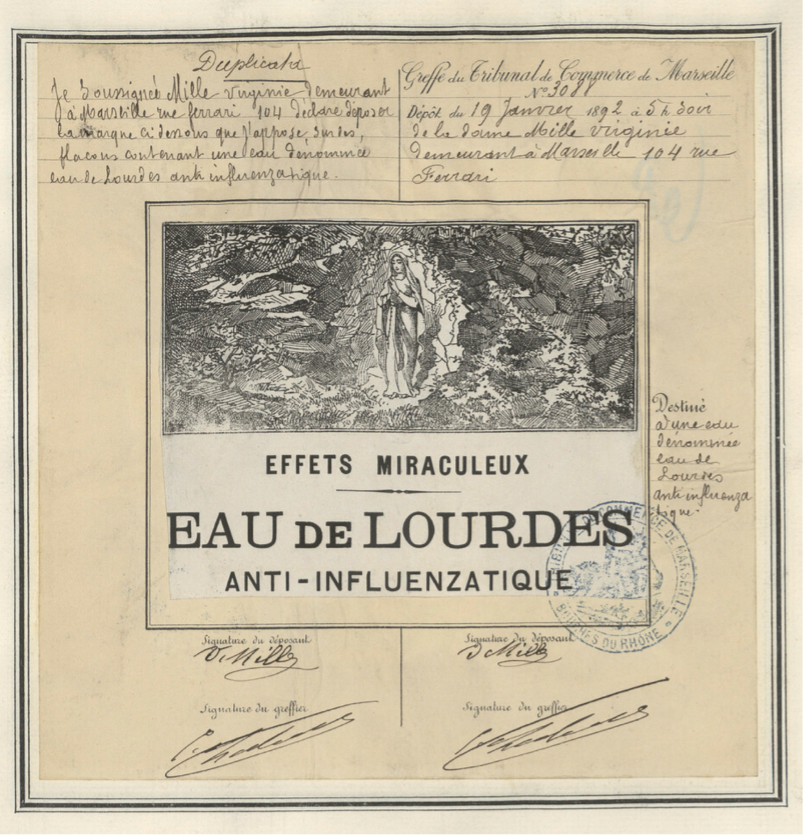 Duplicata
Je Soussignée Mille Virginie demeurant
à Marseille rue ferrari 104 déclare déposer
la marque ci dessous que j'appose sur des,
flacons contenant une eau dénommée
eau de Lourdes anti influenzatique.
Greffe du Tribunal de Commerce de Marseille
N° 3088
Dépôt du 19 Janvier 1892 à 5 h Soir
de la dame Mille Virginie
demeurant à Marseille 104 rue
Ferrari
EFFETS MIRACULEUX
EAU DE LOURDES
ANTI-INFLUENZATIQUE
Destiné
à une eau
dénommée
eau de
Lourdes
anti influenza
tique.
COMMERCE DE MARSEILLE
BOUCHES DU RHÔNE
Signature du déposant
V. Mille
Signature du déposant
V. Mille
Signature du greffier
Signature du greffier